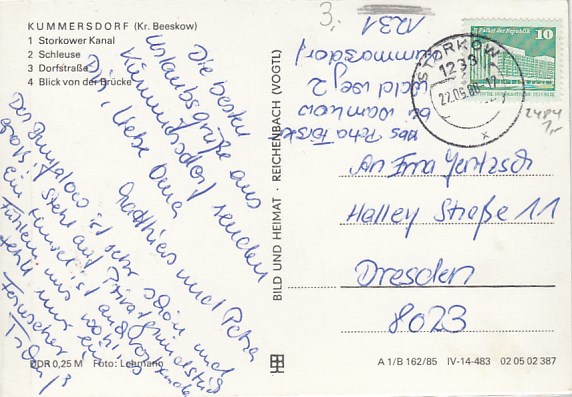 KUMMERSDORF (Kr. Beeskow)
1 Storkower Kanal
2 Schleuse
3 Dorfstraße
4 Blick von der Brücke
Die besten
Urlaubsgrüße aus
Kummersdorf senden
Dir, liebe Oma
Matthias und Petra
Der Bungalow ist sehr schön und
groß, steht auf Privatgrundstück
ein
ist
Fühlen uns wohl, es
fehlt nur ein
Fernseher
DDR 0,25 M Foto: Lehmann
BILD UND HEIMAT · REICHENBACH (VOGTL)
3.
1231
Kummersdorf
Waldweg 2
bei
Abs. Petra
STORKOW
1233
22.05.86-12
x
Palast der Republik
10
DEUTSCHE DEMOKRATISCHE REPUBLIK
2484
1,-
An Irma Jentzsch
Halley Straße 11
Dresden
8023
A 1/B 162/85 IV-14-483 02 05 02 387